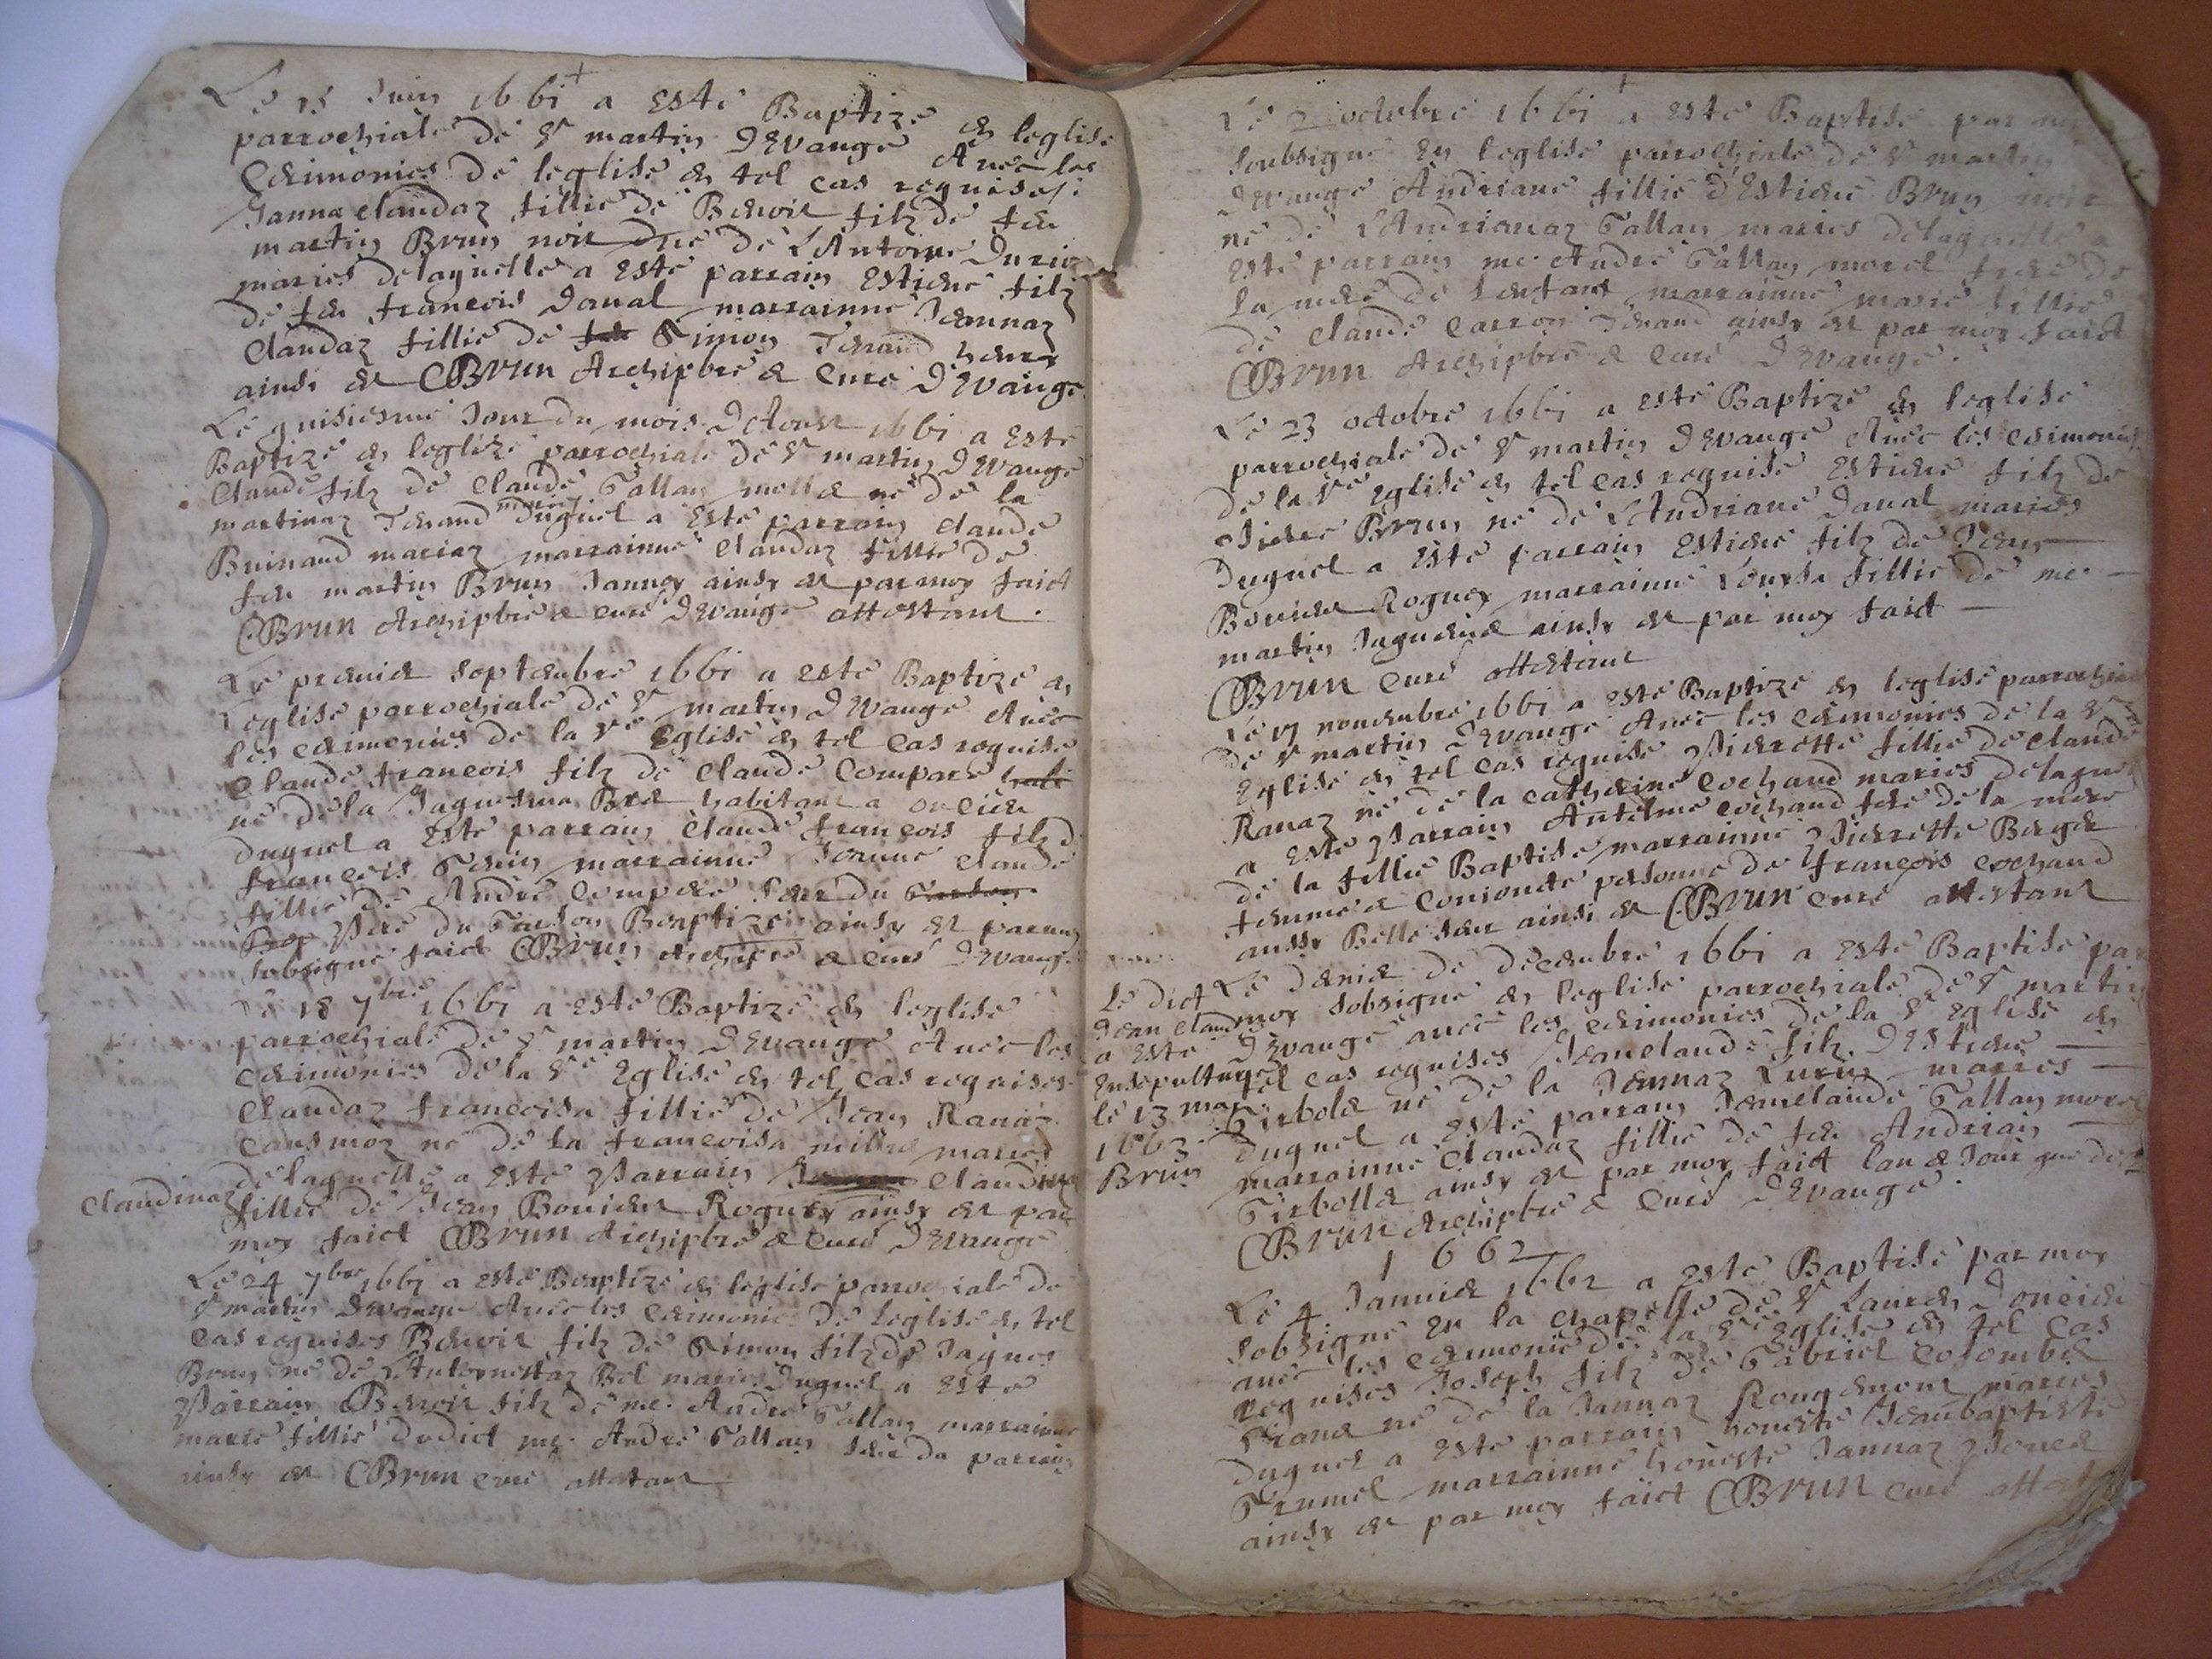 Le 15 Juin 1661 a esté Baptizé en leglise
parrochiale de St martin d'Evange Avec les
Cerimonies de leglise en tel cas requises
Janna claudaz fillie de Benoit filz de feu
martin Brun noir né de L'Antoine
maries delaquelle a esté parrain Estiene filz
de feu francois Daval marrainne Jeannaz
Claudaz fillie de feu Simon Tenand
ainsi est CBrun Archiptre & Curé D'Evange
Le quisiesme Jour du mois D'Aoust 1661 a esté
Baptizé en leglize parrochiale de St martin D'Evange
Claude filz de Claude Gallay mollie né de la
martinaz Tenand maries duquel a esté parrain claude
Buinand mariaz marrainne Claudaz fillie de
feu martin Brun Janney ainsy est par moy faict
CBrun Archiptre & curé D'Evange attestant.
Le premier Septembre 1661 a esté Baptizé en
leglise parrochiale de St martin D'Evange Avec
les cerimonies de la Ste Eglise en tel cas requise
Claude francois filz de Claude Compare
né de la Jaquema habitant a oncieu
duquel a esté parrain Claude francois filz d
francois marrainne Jeanne claude
fillie de André Compere Seur du Garson
Pere du Garson Baptizé ainsy est par moy
sobsigné faict CBrun Archiptre & curé D'Evange
Le 18 7bre 1661 a esté Baptizé en leglise
parrochiale de St martin D'Evange Avec les
cerimonies de la Ste Eglise en tel cas requises
Claudaz francoisa fillie de Jean Ranaz
né de la francoisa maries
delaquelle a esté Parrain Claudinaz
Claudinaz fillie de Jean Bouvier Roguey ainsy est par
moy faict CBrun Archiptre & curé D'Evange
Le 24 7bre 1661 a esté Baptizé en leglise parrochiale de
St martin D'Evange Avec les cerimonies de leglise en tel
cas requises Benoit filz de Simon filz de Jaques
Brun né de L'Antoynettaz Bel maries duquel a esté
Parrain Benoit filz de me. André Gallay marrainne
marie fillie dudict me. André Gallay seur du parrain
ainsy est CBrun curé attestant
Le 2 octobre 1661 a esté Baptisé par moy
soubsigné en leglise parrochiale de St martin
D'Evange Andriane fillie d'Estiene Brun noir
né de L'Andrianaz Gallay maries delaquelle a
esté parrain me. André Gallay morel frere de
la mere de lenfant marrainne marie fillie
de claude Carron Tenand ainsy est par moy faict
CBrun Archiptre & curé D'Evange.
Le 23 octobre 1661 a esté Baptizé en leglise
parrochiale de St martin D'Evange Avec les cerimonies
de la Ste Eglise en tel cas requise Estiene filz de
Pierre Brun né de L'Andriane Daval maries
duquel a esté parrain Estiene filz de Jean
Bouvier Roguey marrainne Loursa fillie de me.
martin ainsy est par moy faict
CBrun curé attestant
Le 17 novembre 1661 a esté Baptizé en leglise parrochiale
de St martin D'Evange Avec les cerimonies de la Ste
Eglise en tel cas requise Pierrette fillie de Claude
Ranaz né de la catherine Cochand maries delaquel
a esté Parrain Antelme Cochand frere de la mere
de la fillie Baptisé marrainne Pierrette Berger
femme & conioncte personne de francois Cochand
aussy Belle seur ainsi est CBrun curé attestant
Le Dernier de Decembre 1661 a esté Baptisé par
moy sobsigné en leglise parrochiale de St martin
D'Evange avec les cerimonies de la Ste Eglise en
tel cas requises Jeanclaude filz D'Estiene
Girbolet né de la Jeannaz Lurin maries
duquel a esté parrain Jeanclaude Gallay morel
marrainne Claudaz fillie de feu Andrian
Girbollet ainsy est par moy faict lan & Jour que dess
CBrun Archiptre & Curé D'Evange.
Le dict
Jean claud
a esté
Ensepulturé
le 13 may
1663.
Brun
1662
Le 4 Janvier 1662 a esté Baptisé par moy
sobsigné en la chapelle de St Laurens D'oncieu
avec les cerimonie de la Ste Eglise en tel cas
requises Joseph filz de Gabriel Colombet
né de la Jannaz Rougemont maries
duquel a esté parrain honeste Jeanbaptiste
marrainne honeste Jannaz
ainsy est par moy faict CBrun curé attest